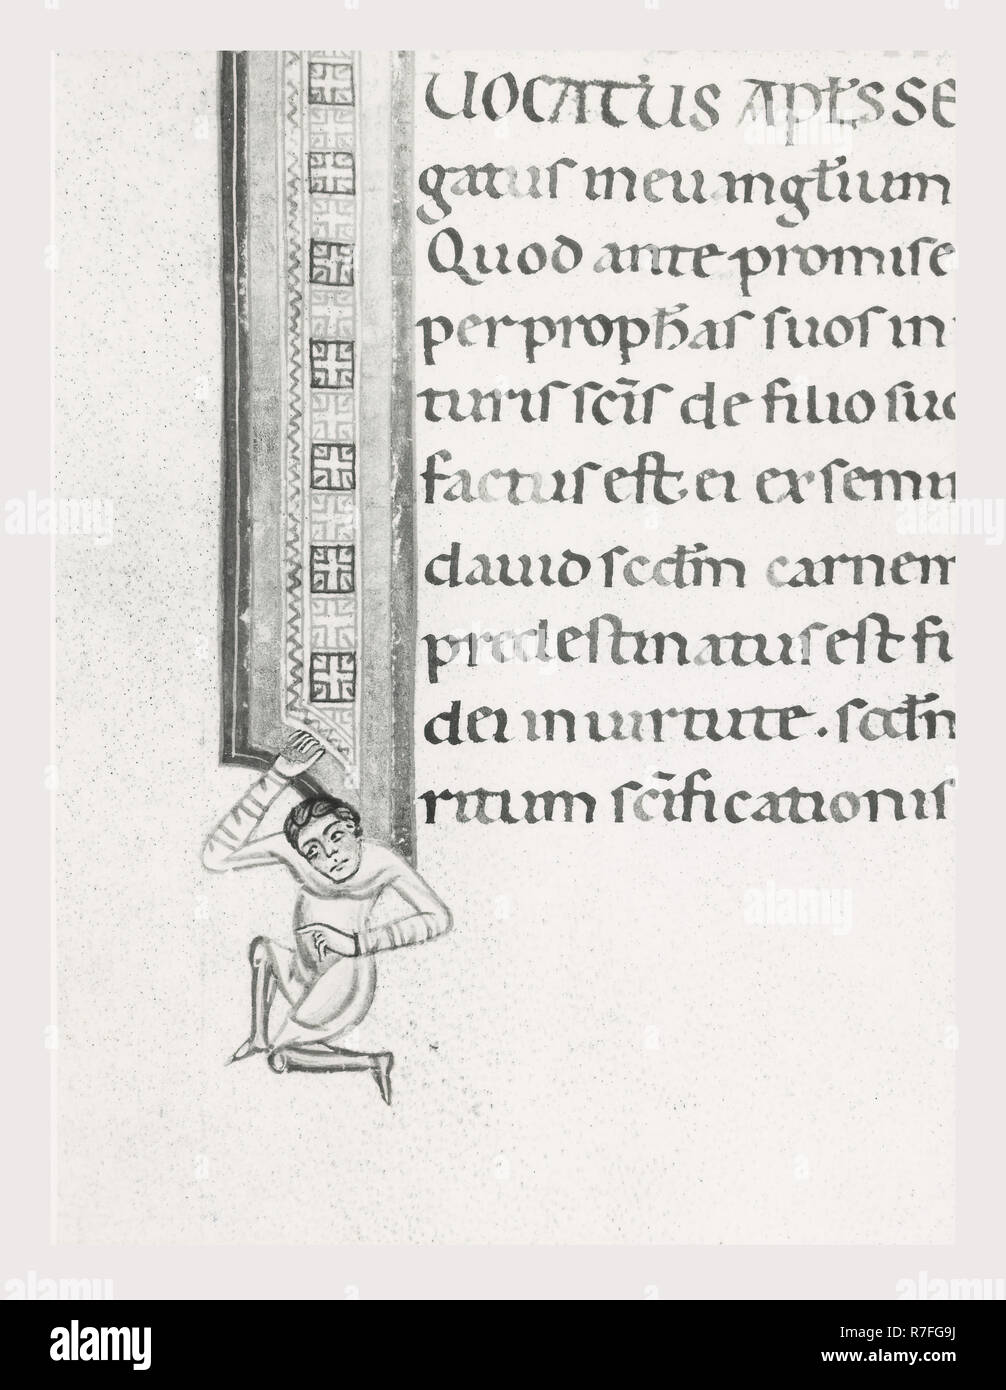 UOCATUS APL̄S SE
gatus in euangl̄ium
Quod ante promise
per proph̄as suos in
turis sc̄is de filio suo
factus est ei ex semin
dauid scd̄m carnem
predestinatus est fi
dei in uirtute . scd̄m
ritum sc̄ificationis
alamy
Image ID: R7FG9J
www.alamy.com